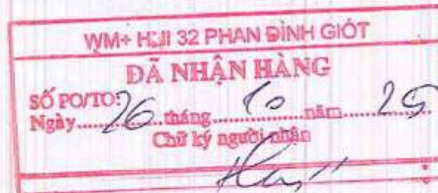 WM+ HNI 32 PHAN ĐÌNH GIÓT
ĐÃ NHẬN HÀNG
SỐ PO/TO:
Ngày 26 tháng 10 năm 25
Chữ ký người nhận